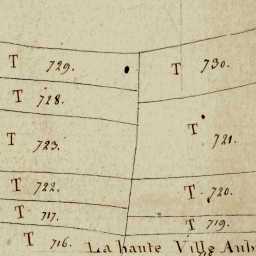 T 729.
T 730.
T 728.
T 723.
T 721.
T 722.
T 720.
T 717.
T 719.
T 716.
La haute Ville Aub